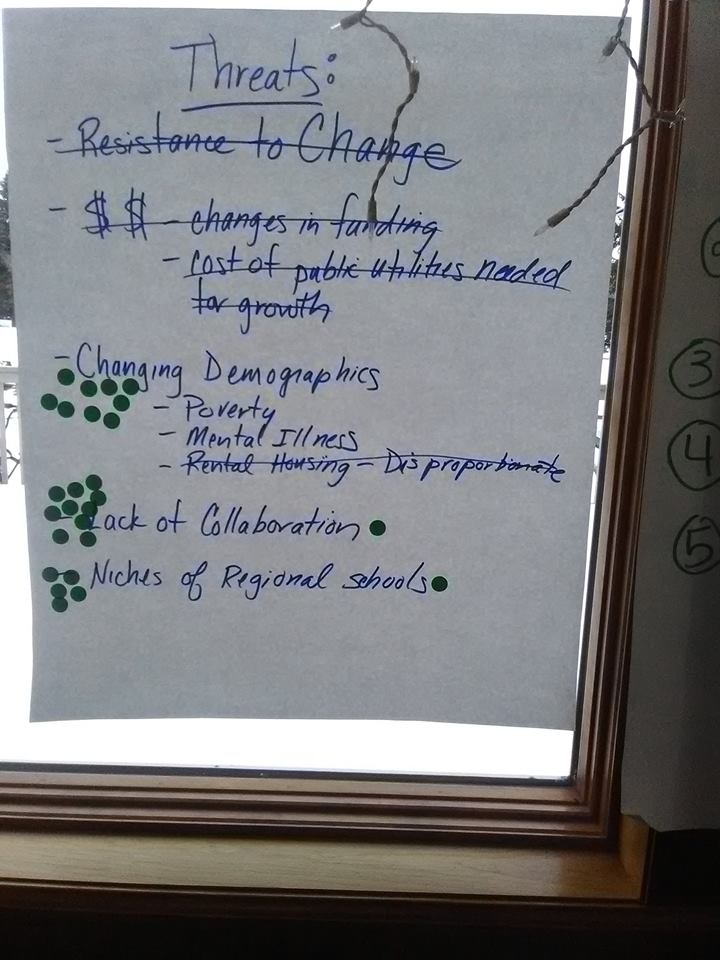 Threats:
- Resistance to Change
- $$ - changes in funding
- cost of public utilities needed
for growth
- Changing Demographics
- Poverty
- Mental Illness
- Rental Housing - Disproportionate
- Lack of Collaboration
- Niches of Regional schools
3
4
5